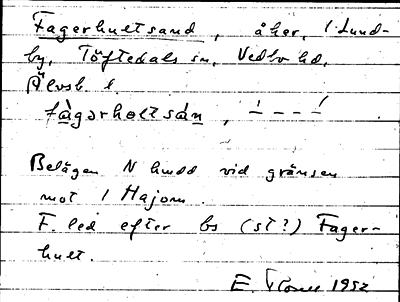 Fagerhultsand, åker, 1 Lund-
by, Töftedals sn, Vedbo hd,
Älvsb. l.
fàgərhəltsán,
Belägen N vid gränsen
mot 1 Hajom.
F. led efter bs (st?) Fager-
hult.
E. 1952